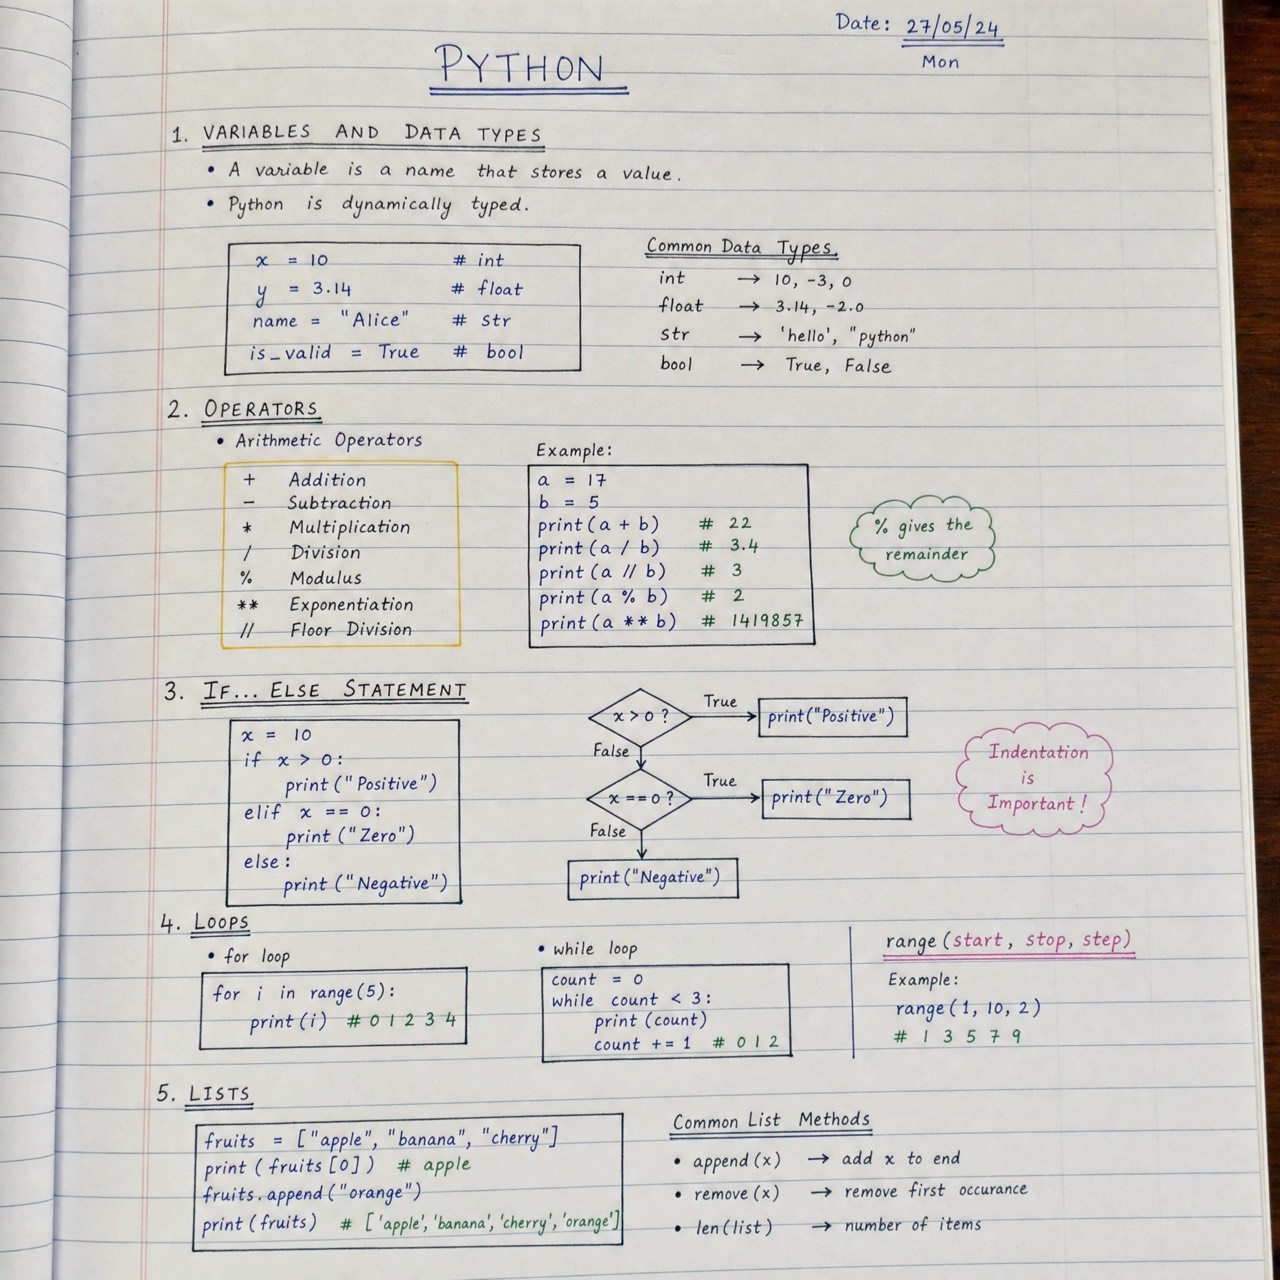 Date: 27/05/24
Mon
PYTHON
1. VARIABLES AND DATA TYPES
• A variable is a name that stores a value.
• Python is dynamically typed.
x = 10 # int
y = 3.14 # float
name = "Alice" # str
is_valid = True # bool
Common Data Types
int → 10, -3, 0
float → 3.14, -2.0
str → 'hello', "python"
bool → True, False
2. OPERATORS
• Arithmetic Operators
+ Addition
- Subtraction
* Multiplication
/ Division
% Modulus
** Exponentiation
// Floor Division
Example:
a = 17
b = 5
print(a + b) # 22
print(a / b) # 3.4
print(a // b) # 3
print(a % b) # 2
print(a ** b) # 1419857
% gives the
remainder
3. IF... ELSE STATEMENT
x = 10
if x > 0:
    print("Positive")
elif x == 0:
    print("Zero")
else:
    print("Negative")
x > 0 ?
True
print("Positive")
False
x == 0 ?
True
print("Zero")
False
print("Negative")
Indentation
is
Important!
4. LOOPS
• for loop
for i in range(5):
    print(i) # 0 1 2 3 4
• while loop
count = 0
while count < 3:
    print(count)
    count += 1 # 0 1 2
range(start, stop, step)
Example:
range(1, 10, 2)
# 1 3 5 7 9
5. LISTS
fruits = ["apple", "banana", "cherry"]
print(fruits[0]) # apple
fruits.append("orange")
print(fruits) # ['apple', 'banana', 'cherry', 'orange']
Common List Methods
• append(x) → add x to end
• remove(x) → remove first occurance
• len(list) → number of items